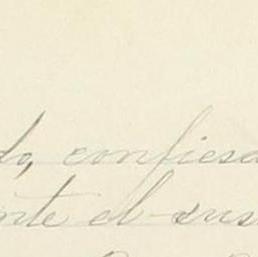 do, confiesa
nte el sus